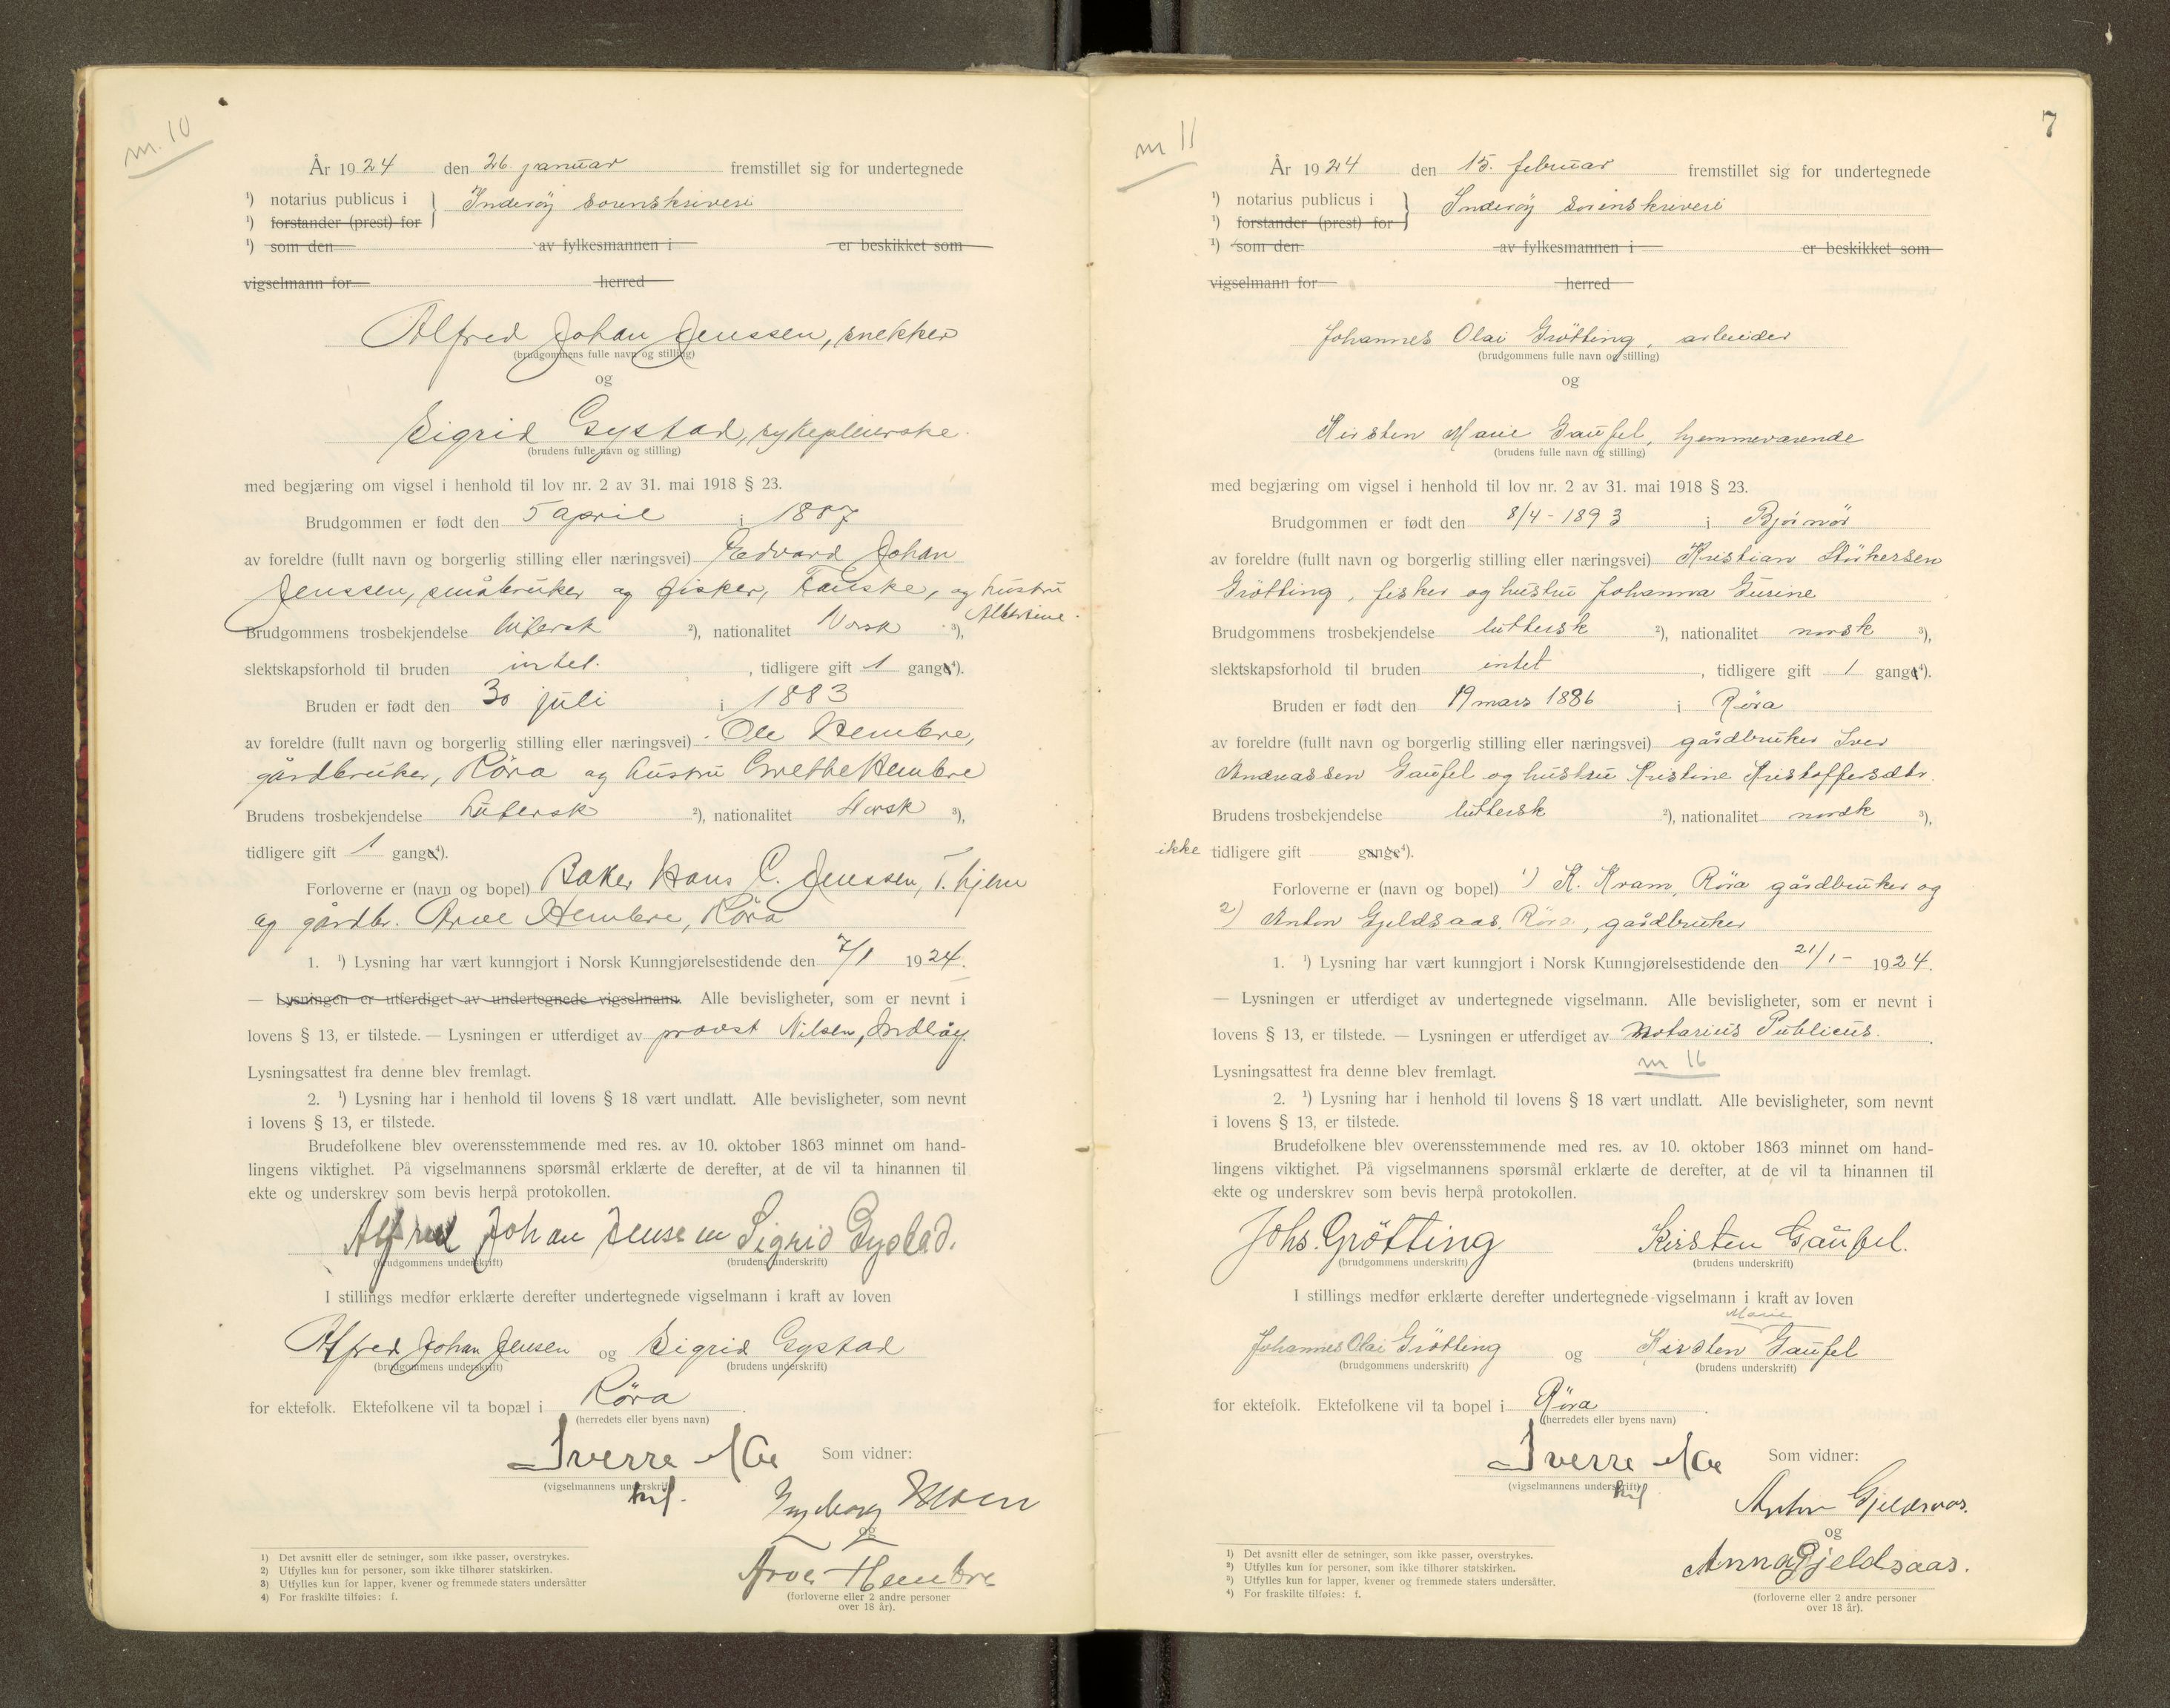 m. 10
År 1924 den 26. januar fremstillet sig for undertegnede
¹) notarius publicus i } Inderöy sorenskriveri
¹) forstander (prest) for
¹) som den av fylkesmannen i er beskikket som
vigselmann for herred
Alfred Johan Jenssen, snekker
(brudgommens fulle navn og stilling)
og
Sigrid Gystad, sykepleierske
(brudens fulle navn og stilling)
med begjæring om vigsel i henhold til lov nr. 2 av 31. mai 1918 § 23.
Brudgommen er født den 5 april i 1887
av foreldre (fullt navn og borgerlig stilling eller næringsvei) Edvard Johan
Jenssen, småbruker og fisker, Fauske, og hustru
Albertine
Brudgommens trosbekjendelse lutersk ²), nationalitet Norsk ³),
slektskapsforhold til bruden intet. , tidligere gift 1 gange⁴).
Bruden er født den 30 juli i 1883
av foreldre (fullt navn og borgerlig stilling eller næringsvei) Ole Hembre,
gårdbruker, Röra og hustru Grethe Hembre
Brudens trosbekjendelse lutersk ²), nationalitet Norsk ³),
tidligere gift 1 gange⁴).
Forloverne er (navn og bopel) Baker Hans C. Jenssen, T.hjem
og gårdbr. Arve Hembre, Röra
1. ¹) Lysning har vært kunngjort i Norsk Kunngjørelsestidende den 7/1 1924.
— Lysningen er utferdiget av undertegnede vigselmann. Alle bevisligheter, som er nevnt i
lovens § 13, er tilstede. — Lysningen er utferdiget av provst Nilsen, Inderöy.
Lysningsattest fra denne blev fremlagt.
2. ¹) Lysning har i henhold til lovens § 18 vært undlatt. Alle bevisligheter, som nevnt
i lovens § 13, er tilstede.
Brudefolkene blev overensstemmende med res. av 10. oktober 1863 minnet om hand-
lingens viktighet. På vigselmannens spørsmål erklærte de derefter, at de vil ta hinannen til
ekte og underskrev som bevis herpå protokollen.
Alfred Johan Jenssen Sigrid Gystad.
(brudgommens underskrift) (brudens underskrift)
I stillings medfør erklærte derefter undertegnede vigselmann i kraft av loven
Alfred Johan Jensen og Sigrid Gystad
(brudgommens underskrift) (brudens underskrift)
for ektefolk. Ektefolkene vil ta bopæl i Röra .
(herredets eller byens navn)
Sverre Moe Som vidner:
(vigselmannens underskrift)
Ingeborg Moen
og
Arve Hembre
(forloverne eller 2 andre personer
over 18 år).
1) Det avsnitt eller de setninger, som ikke passer, overstrykes.
2) Utfylles kun for personer, som ikke tilhører statskirken.
3) Utfylles kun for lapper, kvener og fremmede staters undersåtter
4) For fraskilte tilføies: f.
7
m 11
År 1924 den 15. februar fremstillet sig for undertegnede
¹) notarius publicus i } Inderöy sorenskriveri
¹) forstander (prest) for
¹) som den av fylkesmannen i er beskikket som
vigselmann for herred
Johannes Olai Grötting, arbeider
(brudgommens fulle navn og stilling)
og
Kirsten Marie Gaufel, hjemmeværende
(brudens fulle navn og stilling)
med begjæring om vigsel i henhold til lov nr. 2 av 31. mai 1918 § 23.
Brudgommen er født den 8/4 - 1893 i Bjørnör
av foreldre (fullt navn og borgerlig stilling eller næringsvei) Kristian Störkersen
Grötting, fisker og hustru Johanna Gurine
Brudgommens trosbekjendelse luthersk ²), nationalitet norsk ³),
slektskapsforhold til bruden intet , tidligere gift 1 gange⁴).
Bruden er født den 19 mars 1886 i Røra
av foreldre (fullt navn og borgerlig stilling eller næringsvei) gårdbruker Iver
Andreassen Gaufel og hustru Kristine Kristoffersdtr.
Brudens trosbekjendelse luthersk ²), nationalitet norsk ³),
ikke tidligere gift gange⁴).
Forloverne er (navn og bopel) ¹) K. Kram, Röra gårdbruker og
2) Anton Gjeldsaas, Röra, gårdbruker
1. ¹) Lysning har vært kunngjort i Norsk Kunngjørelsestidende den 21/1 - 1924.
— Lysningen er utferdiget av undertegnede vigselmann. Alle bevisligheter, som er nevnt i
lovens § 13, er tilstede. — Lysningen er utferdiget av Notarius Publicus.
Lysningsattest fra denne blev fremlagt. m 16
2. ¹) Lysning har i henhold til lovens § 18 vært undlatt. Alle bevisligheter, som nevnt
i lovens § 13, er tilstede.
Brudefolkene blev overensstemmende med res. av 10. oktober 1863 minnet om hand-
lingens viktighet. På vigselmannens spørsmål erklærte de derefter, at de vil ta hinannen til
ekte og underskrev som bevis herpå protokollen.
Johs. Grötting Kirsten Gaufel.
(brudgommens underskrift) (brudens underskrift)
I stillings medfør erklærte derefter undertegnede vigselmann i kraft av loven
Marie
Johannes Olai Grötting og Kirsten Gaufel
(brudgommens underskrift) (brudens underskrift)
for ektefolk. Ektefolkene vil ta bopel i Röra .
(herredets eller byens navn)
Sverre Moe Som vidner:
(vigselmannens underskrift)
Anton Gjeldsaas.
og
Anna Gjeldsaas.
(forloverne eller 2 andre personer
over 18 år).
¹) Det avsnitt eller de setninger, som ikke passer, overstrykes.
²) Utfylles kun for personer, som ikke tilhører statskirken.
³) Utfylles kun for lapper, kvener og fremmede staters undersåtter.
⁴) For fraskilte tilføies: f.